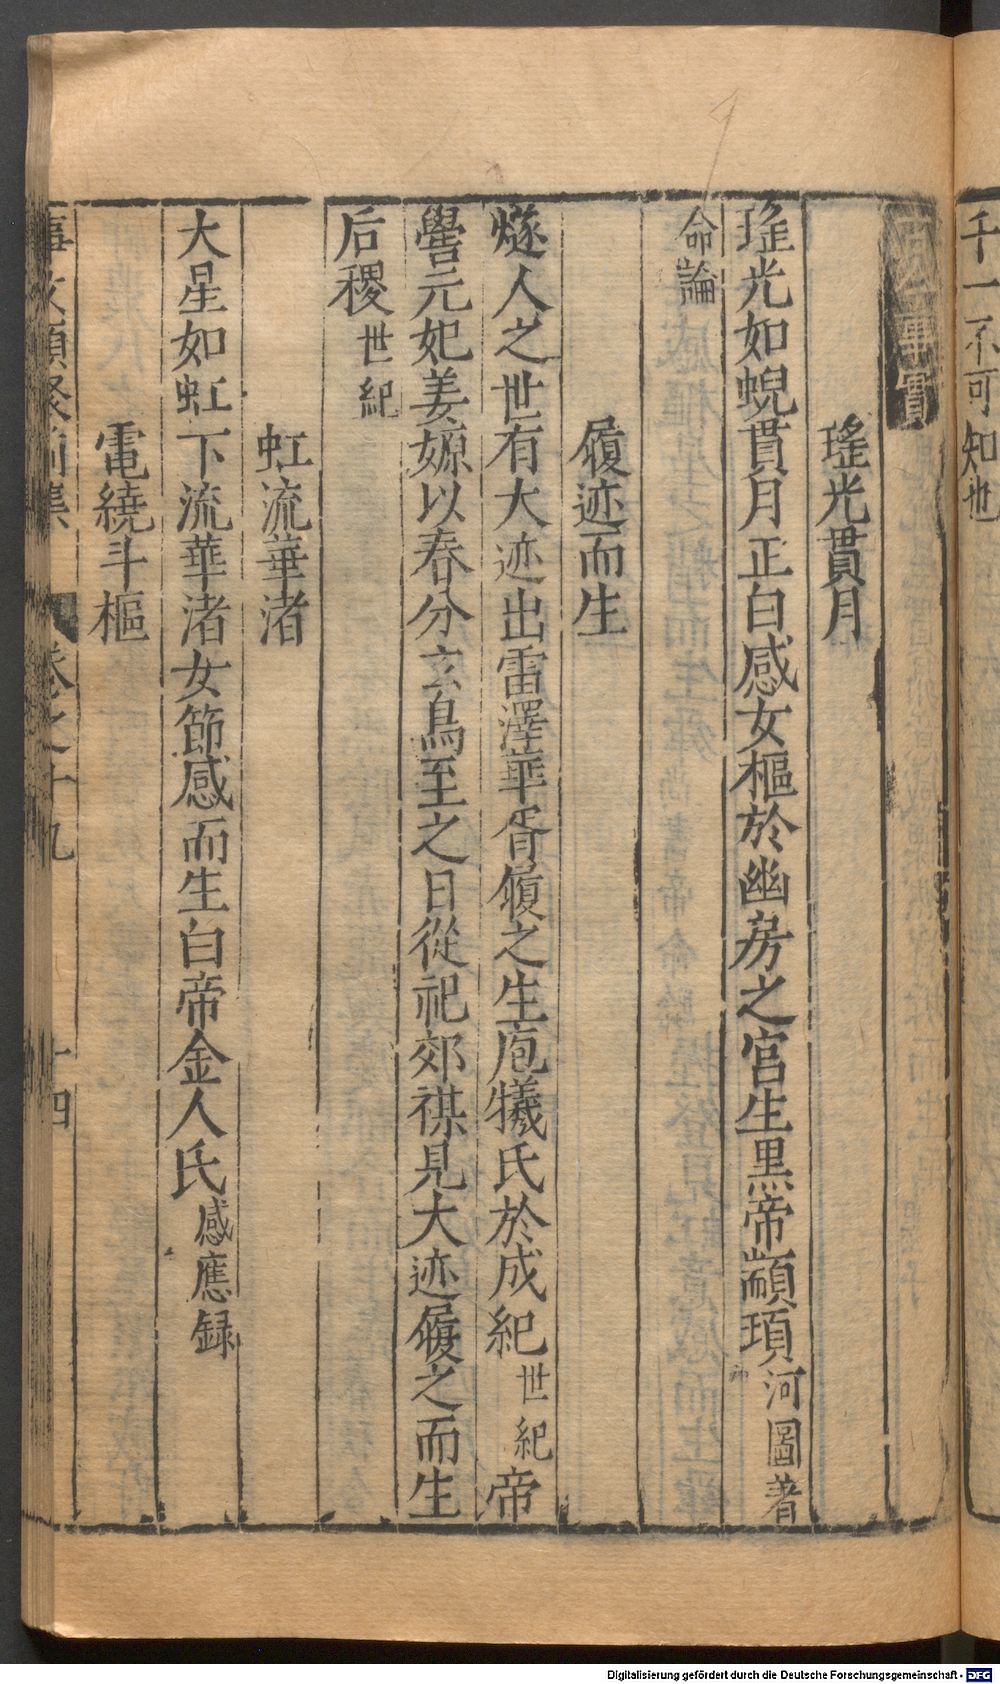 千一不可知也
古今事實
瑤光貫月
瑤光如蜺貫月正白感女樞於幽房之宮生黒帝顓頊河圖著
命論
履迹而生
燧人之世有大迹出雷澤華胥履之生庖犧氏於成紀世紀帝
嚳元妃姜嫄以春分玄鳥至之日從祀郊禖見大迹履之而生
后稷世紀
虹流華渚
大星如虹下流華渚女節感而生白帝金人氏感應録
電繞斗樞
事文類聚前集 卷之十九 十四
Digitalisierung gefördert durch die Deutsche Forschungsgemeinschaft - DFG